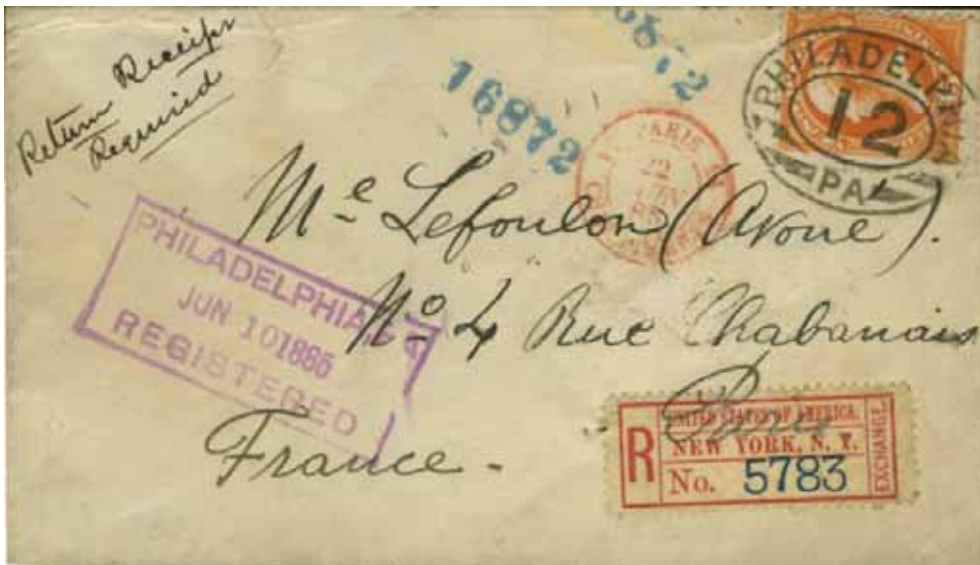 Return Receipt
Required
16872
PHILADELPHIA
12
PA
PARIS
22
Me Lefoulon (Avoué).
No 4 Rue Chabanais
Paris
France.
PHILADELPHIA PA
JUN 10 1886
REGISTERED
R
UNITED STATES OF AMERICA.
NEW YORK, N. Y.
No. 5783
EXCHANGE.